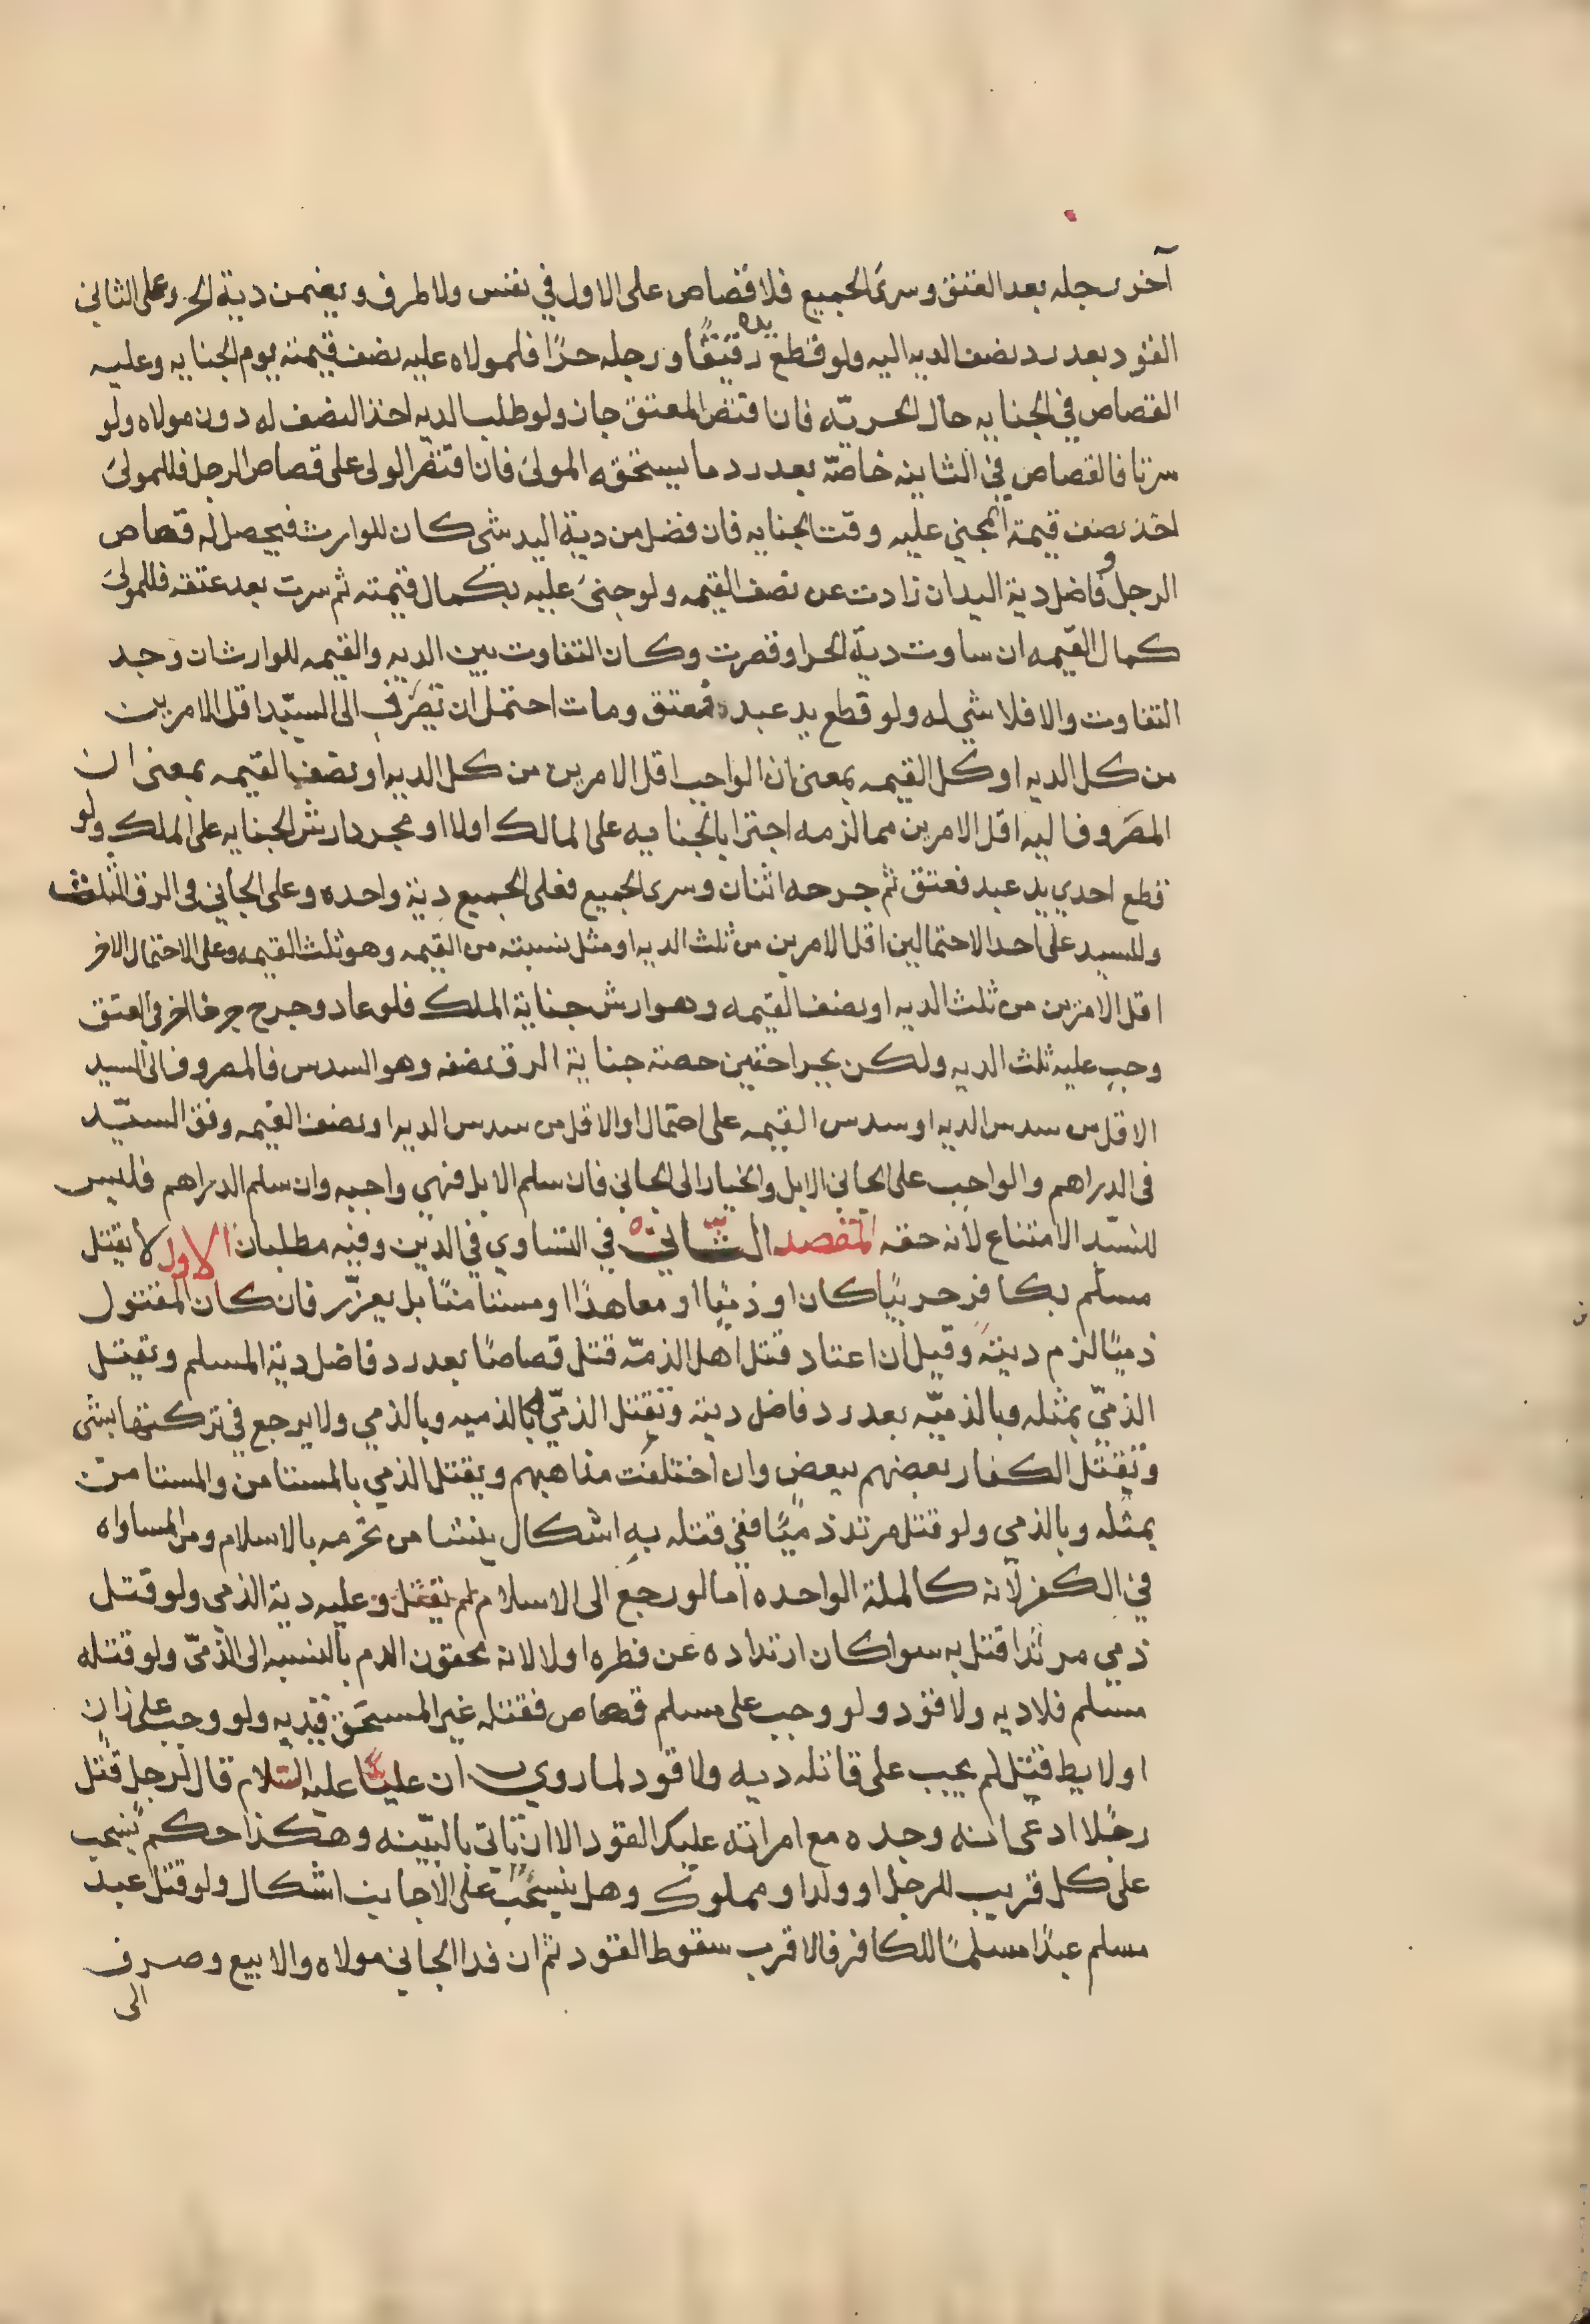 آخر رجله بعد العتق وسرى الجميع فلا قصاص على الاول في نفس ولا طرف ويضمن دية الحر وعلى الثاني
القود بعد رد نصف الديه اليه ولو قطع يده رقيقًا ورجله حرًا فلمولاه عليه نصف قيمته يوم الجنايه وعليه
القصاص في الجنايه حال الحريّه فان اقتص المعتق جاز ولو طلب الديه اخذ النصف له دون مولاه ولو
سرتا فالقصاص في الثانيه خاصّه بعد رد ما يستحقه المولى فان اقتصر الولى على قصاص الرجل فللمولى
اخذ نصف قيمة المجني عليه وقت الجنايه فان فضل من دية اليد شى كان للوارث فيحصل له قصاص
الرجل وفاضل دية اليد ان زادت عن نصف القيمه ولو جنى عليه بكمال قيمته ثم سرت بعد عتقه فللمولى
كمال القيمه ان ساوت دية الحر او قصرت وكان التفاوت بين الديه والقيمه للوارث ان وجد
التفاوت والا فلا شي له ولو قطع يد عبد فعتق ومات احتمل ان تصرف الى السيّد اقل الامرين
من كل الديه او كل القيمه بمعنى ان الواجب اقل الامرين من كل الديه او نصف القيمه بمعنى ان
المصروف اليه اقل الامرين مما لزمه اجترا بالجنايه على المالك اولا او مجرد ارش الجنايه على الملك ولو
قطع احدي يد عبد فعتق ثم جرحه اثنان وسرى الجميع فعلى الجميع دية واحده وعلى الجاني في الرق الثلث
وللسيد على احد الاحتمالين اقل الامرين من ثلث الديه او مثل نسبته من القيمه وهو ثلث القيمه وعلى الاحتمال الاخر
اقل الامرين من ثلث الديه او نصف القيمه وهو ارش جناية الملك فلو عاد وجرح جرحا اخر في العتق
وجب عليه ثلث الديه ولكن بجراحتين حصة جناية الرق نصفه وهو السدس فالمصروف الى السيد
الاقل من سدس الديه او سدس القيمه على احتمال او الاقل من سدس الديه او نصف القيمه وفق السيّد
في الدراهم والواجب على الجاني الابل والخيار الى الجاني فان سلم الابل فهي واجبه وان سلم الدراهم فليس
للسيّد الامتناع لانه حقه المقصد الثاني في التساوي في الدين وفيه مطلبان الاول لا يقتل
مسلم بكافر حربيًا كان او ذميًا او معاهدًا او مستامنًا بل يعزّر فان كان المقتول
ذميًا لزم ديته وقيل ان اعتاد قتل اهل الذمّه قتل قصاصًا بعد رد فاضل دية المسلم ويقتل
الذميّ بمثله وبالذميّه بعد رد فاضل ديته وتقتل الذميّه بالذميه وبالذمي ولا يرجع في تركتها بشى
وتقتل الكفار بعضهم ببعض وان اختلفت مذاهبهم ويقتل الذمي بالمستامن والمستامن
بمثله وبالذمى ولو قتل مرتد ذميًّا ففي قتله به اشكال ينشا من تحرمه بالاسلام ومن المساواه
في الكفر لانه كالملة الواحده اما لو رجع الى الاسلام لم يقتل وعليه دية الذمى ولو قتل
ذمي مرتدا قتل به سوا كان ارتداده عن فطره اولا لانه محقون الدم بالنسبه الى الذميّ ولو قتله
مسلم فلا ديه ولا قود ولو وجب على مسلم قصاص فقتله غير المستحق قيد به ولو وجب على زان
او لايط قتل لم يجب على قاتله ديه ولا قود لما روي ان عليًا عليه السلام قال لرجل قتل
رجلا ادعى انه وجده مع امراته عليك القود الا ان تاتي بالبيّنه وهكذا حكم ينسحب
على كل قريب للرجل او ولد او مملوك وهل ينسحب على الاجانب اشكال ولو قتل عبد
مسلم عبدًا مسلمًا للكافر فالاقرب سقوط القود ثم ان فدا الجاني مولاه والا بيع وصرف
الى